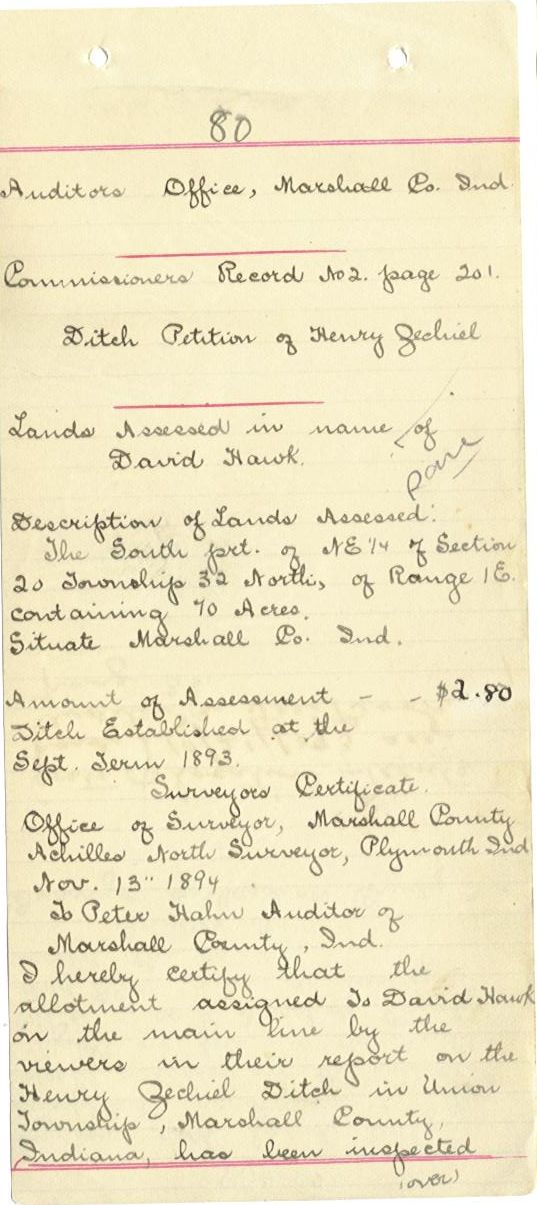 80
Auditors Office, Marshall Co. Ind.
Commissioners Record No 2. page 201.
Ditch Petition of Henry Zechiel
Lands Assessed in name of
David Hawk.
Description of Lands Assessed:
The South prt. of NE 1/4 of Section
20 Township 32 North, of Range 1 E.
containing 70 Acres.
Situate Marshall Co. Ind.
Amount of Assessment - - $2.80
Ditch Established at the
Sept. Term 1893.
Surveyors Certificate.
Office of Surveyor, Marshall County
Achilles North Surveyor, Plymouth Ind
Nov. 13" 1894
To Peter Hahn Auditor of
Marshall County, Ind.
I hereby certify that the
allotment assigned To David Hawk
on the main line by the
viewers in their report on the
Henry Zechiel Ditch in Union
Township, Marshall County,
Indiana, has been inspected
(over)